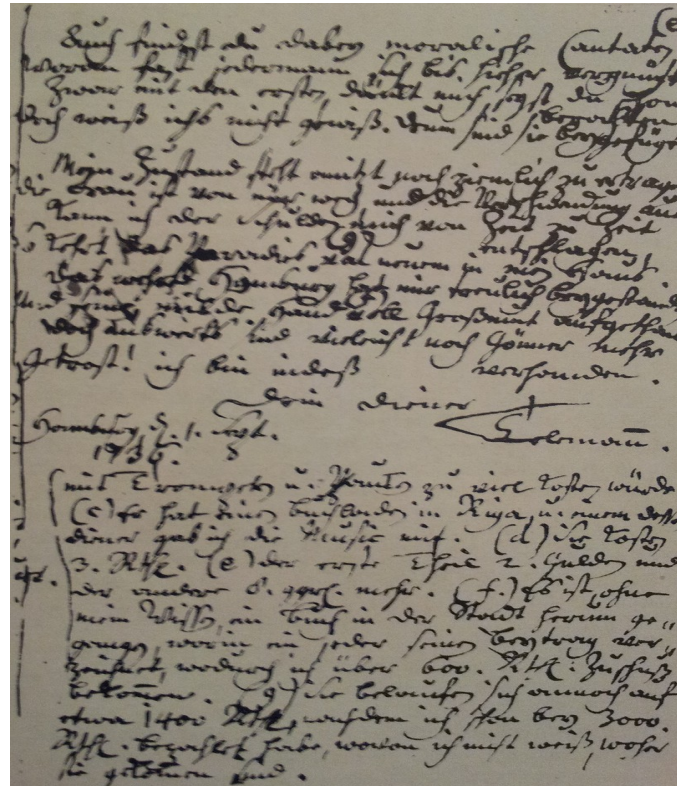 (e
Auch findest du dabey moralische Cantaten
woran fast jedermann sich bis hieher vergnügt
Zwar mit den ersten, damit auch, sagst du schon
bezahlten
doch weiß ichs nicht gewiß. drum sind sie beygefügt
Mein Zustand steht anitzt noch ziemlich zu ertragen
die Frau ist von mir weg und die Verschwendung aus
kann ich der Schulden mich von Zeit zu Zeit
entschlagen,
so kehrt das Paradies von neuem in mein Haus,
das werthe Hamburg hat mir treulich beygestanden
und seine milde Hand voll Großmut aufgethan
doch auswerts sind vieleicht noch Gönner mehr
verhanden.
Getrost! ich bin indeß
dein Diener
Telemann.
Hamburg d. 1. Sept.
1736.
mit Trompeten u. Paucken zu viel kosten würde
(c) Er hat einen buchladen in Riga, u. einem
diener gab ich die Music mit. (d) Sie kosten
3. Rthl. (e) der erste Theil 2. Gulden und
der andere 8. ggrl. mehr. (f.) Es ist, ohne
mein Wissen, ein Buch in der Stadt herum ge-
gangen, worin ein jeder seinen beytrag ver-
zeichnet, wodurch ich über 600. Rthl. Zuschuß
bekommen. g) Sie belaufen sich annoch auf
etwa 1400 Rthl, nachdem ich schon bey 3000.
Rthl. bezahlet habe, wovon ich nicht weiß, woher
sie gekommen sind.